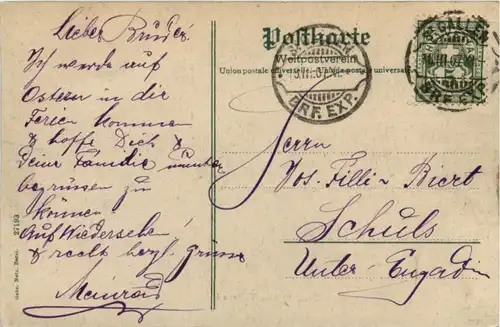 Lieber Bruder!
Ich werde auf
Ostern in die
Ferien kommen
& hoffe Dich &
Deine Familie munter
begrüssen zu
können
Auf Wiedersehen
& recht herzl. Grüsse
Meinrad
Postkarte
Weltpostverein
Union postale universelle. Unione postale universale
ST. GALLEN
BRF. EXP.
ST. GALLEN
III.07
BRF. EXP.
Herrn
Jos. Filli-Biert
Schuls
Unter-Engadin
27193